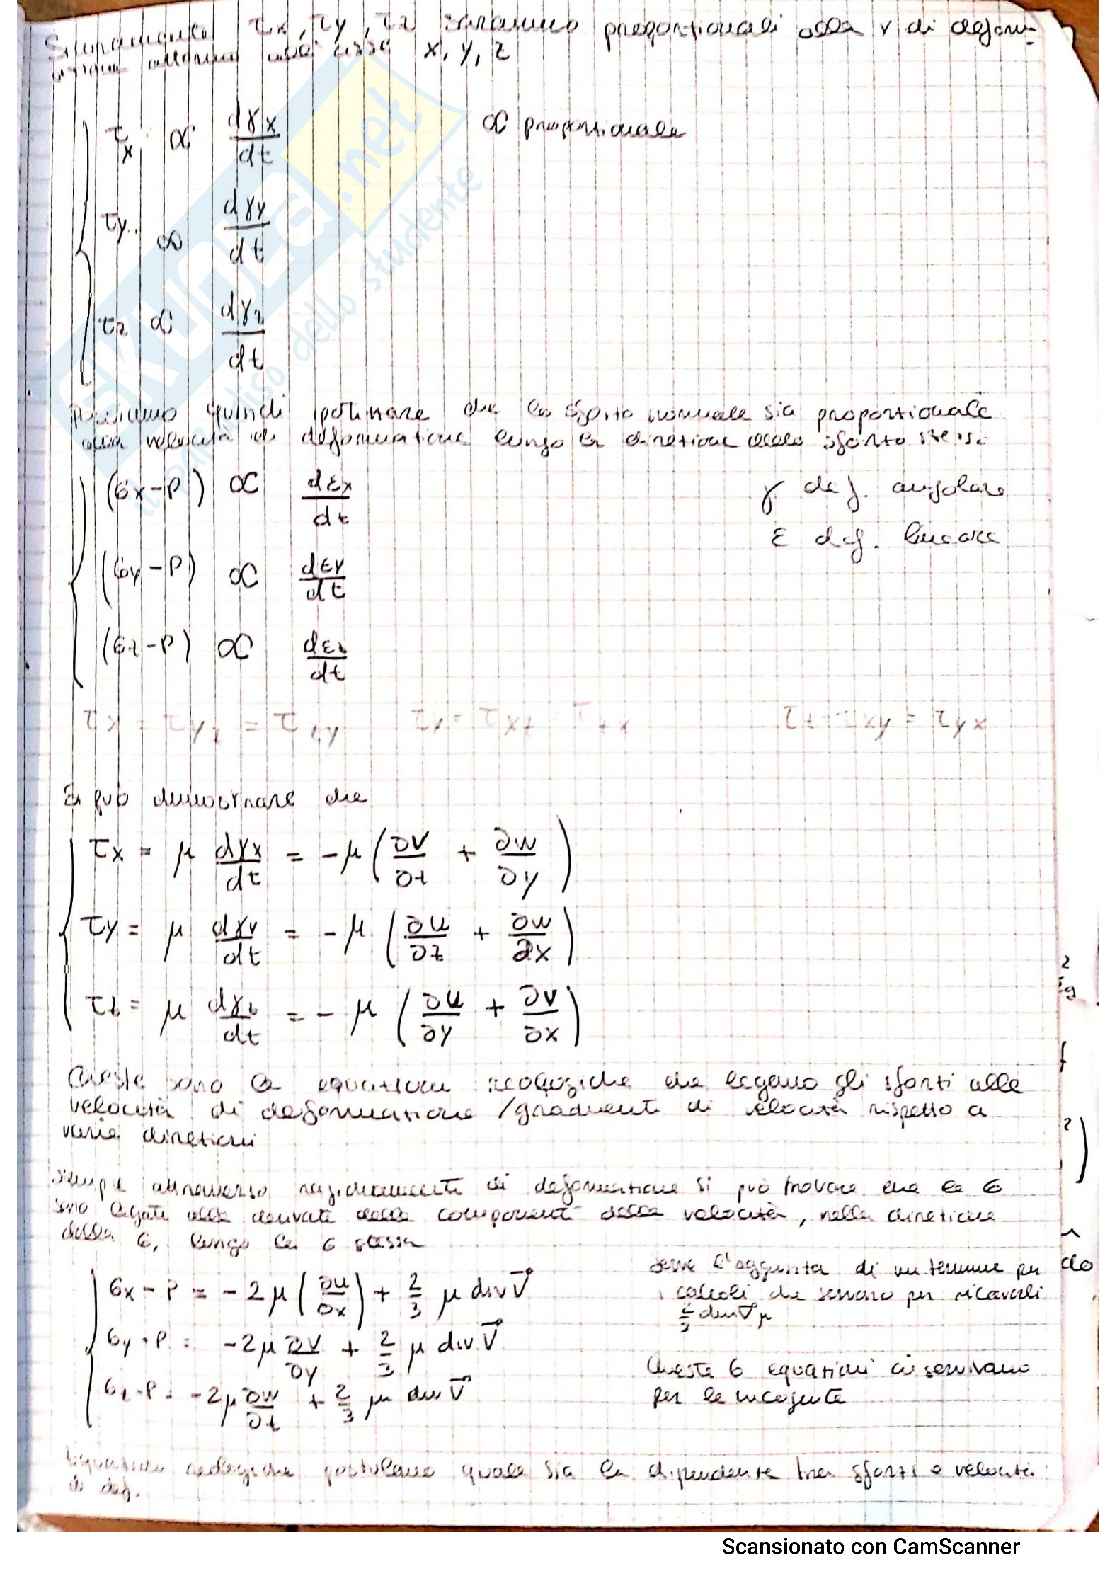 Sicuramente τx, τy, τz saranno proporzionali alla v di deform-
azione attorno agli assi x, y, z
τx ∝ dγx/dt ∝ proporzionale
τy ∝ dγy/dt
τz ∝ dγz/dt
Possiamo quindi ipotizzare che lo sforzo normale sia proporzionale
alla velocità di deformazione lungo la direzione dello sforzo stesso
(σx-P) ∝ dεx/dt γ def. angolare
ε def. lineare
(σy-P) ∝ dεy/dt
(σz-P) ∝ dεz/dt
τx = τyz = τzy τy = τxz = τzx τz = τxy = τyx
Si può dimostrare che
τx = μ dγx/dt = -μ (∂v/∂z + ∂w/∂y)
τy = μ dγy/dt = -μ (∂u/∂z + ∂w/∂x)
τz = μ dγz/dt = -μ (∂u/∂y + ∂v/∂x)
Queste sono le equazioni reologiche che legano gli sforzi alle
velocità di deformazione /gradienti di velocità rispetto a
varie direzioni
Sempre attraverso ragionamenti di deformazione si può trovare che le σ
sono legate alle derivate delle componenti della velocità, nella direzione
della σ, lungo la σ stessa
σx-P = -2μ (∂u/∂x) + 2/3 μ div V⃗
serve l'aggiunta di un termine per
calcoli che servono per ricavarli
2/3 div V⃗ μ
σy-P = -2μ ∂v/∂y + 2/3 μ div V⃗
σz-P = -2μ ∂w/∂z + 2/3 μ div V⃗
Queste 6 equazioni ci servivano
per le incognite
Equazioni reologiche postulano quale sia la dipendenza tra sforzi e velocità
di def.
Scansionato con CamScanner